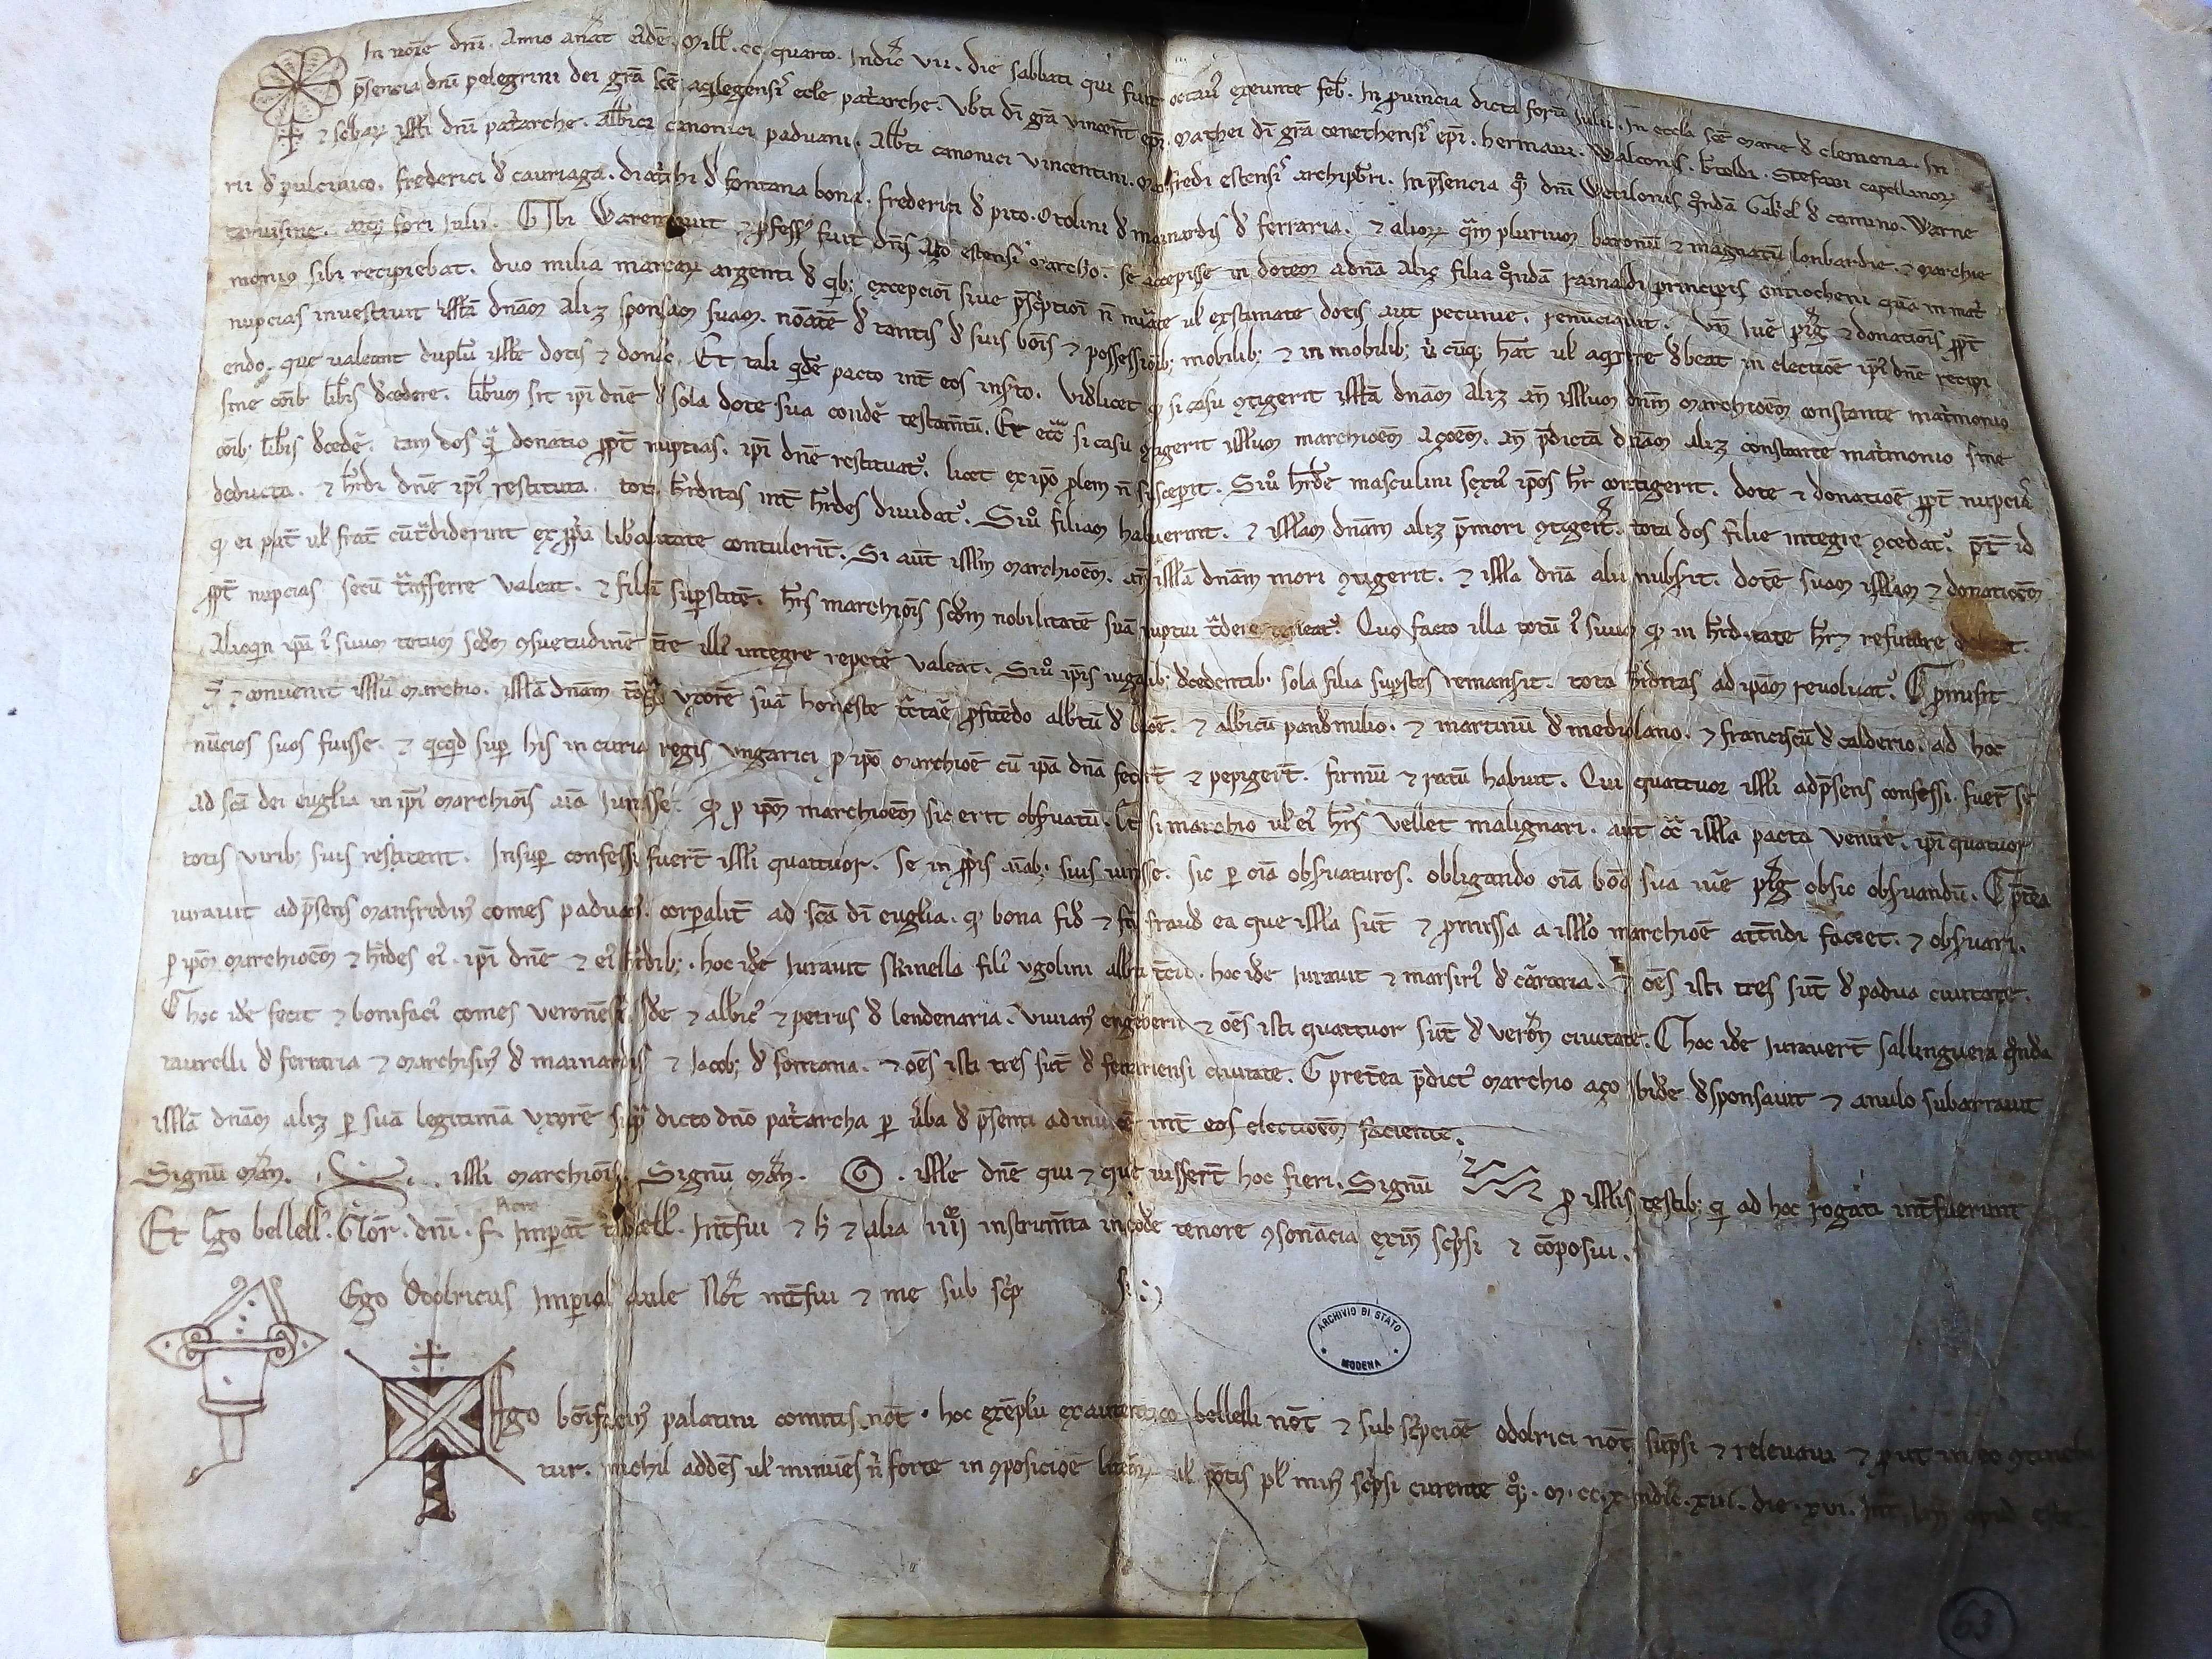 In noīe dnī. Anno a natͭ eidē. Mill. cc. quarto. Indic̄ vii. die sabbati qui fuit octaū exeunte feb. In puincia dicta forū Iulii. In eccla scē Marie d̄ clemona. In
p̄sencia dnī pelegrini dei grā scē aqlegensis ecle pat̄arche. Ubti dī grā vincent̄ epī. Mathei dī grā cenethensis epī. hermani. Walconis. btoldi. Stefani capellanoꝝ
⁊ scolarꝝ isti dnī pat̄arche. Albici canonici paduani. Albti canonici vincentini. Manfredi estensis archipbri. In p̄sencia qꝫ dnī Wecilonis q̄ndā Gabiel d̄ camino. Warne
rii d̄ pulcinico. frederici d̄ cauriaga. diat̄hi d̄ fontana bona. frederici d̄ pito. Otolini d̄ mainardis d̄ ferraria. ⁊ alioꝝ q̄m plurium baronū ⁊ magnatū lonbardie. ⁊ Marchie
taruisine. atqꝫ fori Iulii. Ibi Waren⁊auit ⁊ pfessus fuit dn̄s Aço estensis marchio. se accepisse in dotem a dnā Aliz filia q̄ndā rainaldi principis antiocheni quā in mat̄
monio sibi recipiebat. duo milia marcarꝝ argenti d̄ qib; excepcioni siue p̄scptioni n̄ nūate ul extimate dotis aut pecunie. renunciauit. Un̄ iuē pig ⁊ donationis ppt̄
nupcias inuestiuit istā dnām Aliz sponsam suam. noatē d̄ tantis d̄ suis bōis ⁊ possessiōib; mobilib; ⁊ in mobilib; ū cūqꝫ hat̄ ul aqirere d̄beat in electiōe ipī dnē recipi
endo. que valeant duplū iste dotis ⁊ donis. Et tali qidē pacto int̄ eos insto. vidlicet qꝫ si casu ꝯtigerit istā dnām Aliz an̄ istum dnm Marchioēm constante mat̄monio
sine cōib libis d̄cedere. libum sit ipī dnē d̄ sola dote sua condē testamtū. Et etc̄ si casu ꝯtigerit istum marchioēm Açoēm. an̄ p̄dictā dnām aliz constante mat̄monio sine
cōib; libis d̄cedē. tam dos q̄ donatio ppt̄ nupcias. ipī dnē restituat. licet ex ipo plem n̄ susceperit. Siū hēde masculini sexus ipos hē contigerit. dote ⁊ donatioē ppt̄ nupcias
deducta. ⁊ hdi dnē ipi restituta. tota hditas int̄ hdes diuidat. Siū filiam habuerint. ⁊ istam dnām aliz p̄mori ꝯtigerit. tota dos filie integre ꝯcedat. pt̄ id
qꝫ ei pat̄ ul frat̄ cū tdiderint ex ppia libalitate contulerit. Si aut̄ istm marchioēm. an̄ istā dnām mori ꝯtigerit. ⁊ ista dnā alii nubsit. dotē suam istam ⁊ donatioēm
ppt̄ nupcias secū tnsferre valeat. ⁊ filiā supstitē. hes marchiois scdm nobilitatē suā nuptui tdere teneat. Quo facto illa totū ius suum qꝫ in hditate hēt refutare debeat.
Alioqin ipa ius suum totum scdm ꝯsuetudinē tre illi integre repetē valeat. Siū ipis iugalib; d̄cedentib; sola filia supstes remansit. tota hditas ad ipam reuoluat. pmisit
⁊ conuenit istū Marchio. istā dnām uxorē suā honeste tctaē pfitēdo albtū d̄ ⁊ albicū pandimilio. ⁊ martinū d̄ mediolano. ⁊ franciscū d̄ calderio. ad hoc
nūcios suos fuisse. ⁊ qicqid sup his in curia regis ungarici p ipo marchioē cū ipa dnā fecert̄ ⁊ pepigert̄. firmū ⁊ ratū habuit. Qui quattuor isti ad p̄sens confessi. fuert̄ se
ad scā dei euglia in ipī marchiois aīa iurasse. qꝫ p ipm marchioēm sic erit obsuatū. Et si marchio ul ei hes vellet malignari. aut cc̄ ista pacta venire. ipi quatuor
totis virib; suis restitent. Insup confessi fuert̄ isti quattuor. se in ppiis aīab; suis iurasse. sic p oīa obsuaturos. obligando oīa bōa sua iuē pig ob sic obsuandū. p̄tea
iurauit ad p̄sens manfredin comes paduan. corpalit̄ ad sca dī euglia. qꝫ bona fid̄ ⁊ sn̄ fraud̄ ea que ista sūt ⁊ pmissa a isto marchioē attendi faciet. ⁊ obsuari.
p ipm Marchioēm ⁊ hdes ei. ipī dnē ⁊ ei hdib;. hoc idē iurauit skinella fili ugolini albti. hoc idē iurauit ⁊ marsirius d̄ caraia. ⁊ oēs isti tres sūt d̄ padua ciuitate.
hoc idē fecit ⁊ bonifacius comes veronēsis. Idē ⁊ albic ⁊ petrus d̄ lendenaria. viuian engeberti ⁊ oēs isti quattuor sūt d̄ veron ciuitate. hoc idē iurauert̄ sallinguera q̄nda
taurelli d̄ ferraria ⁊ marchisin d̄ mainardis ⁊ iacob; d̄ fontana. ⁊ oēs isti tres sūt d̄ ferrariensi ciuitate. preterea p̄dict Marchio aço ibidē d̄sponsauit ⁊ anulo subarrauit
istā dnām aliz p suā legitimā uxorē sup dicto dno pat̄archa p uba d̄ p̄senti ad inuicē int̄ eos electioēm faciente.
Signū man. isti marchiois. Signū man. iste dnē qui ⁊ que iussert̄ hoc fieri. Signū p istis testib; qi ad hoc rogati int̄fuerunt
Et Ego bellell. Not. dnī. f. Impat̄ Int̄fui ⁊ h ⁊ alia iiii instrumta in eodē tenore ꝯsonācia exin scpsi ⁊ cōposui.
Ego Odolricus Imperial aule Not̄ int̄fui ⁊ me sub scp si
Ego bōifacin palatini comitis not̄. hoc exēplū ex autentico bellelli not̄ ⁊ sub scpcioē odolrici not̄ scpsi ⁊ releuaui ⁊ put in eo ꝯtineba
tur. nichil addēs ul minuēs n̄ forte in ꝯposicioē litarꝝ ul pōtis pl min scpsi currente
ARCHIVIO DI STATO
MODENA
63